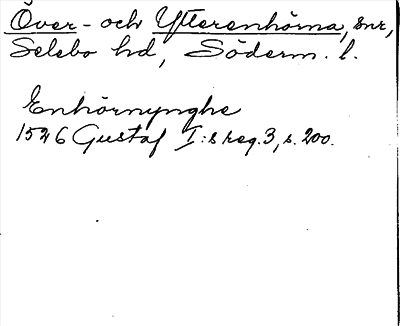 Över- och Ytterenhörna, snr,
Selebo hd, Söderm. l.
Enhörnynghe
1526 Gustaf I:s reg. 3, s. 200.